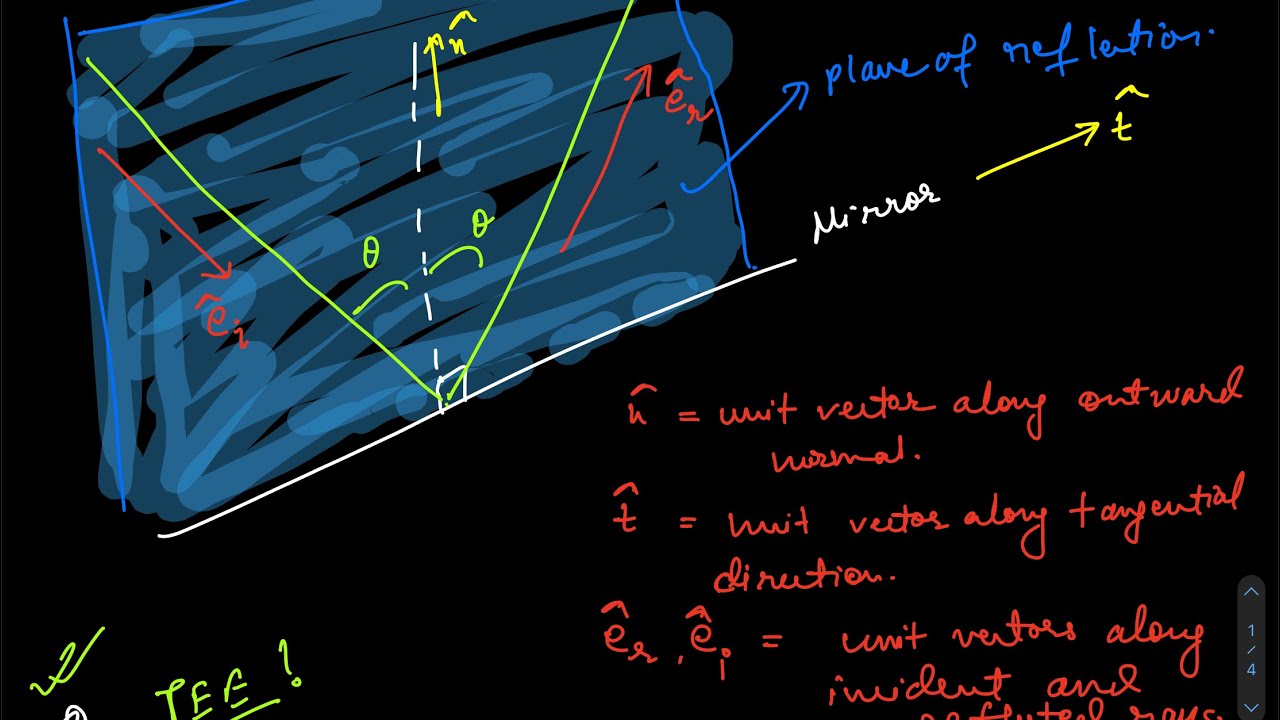 n̂
plane of reflection.
ê_r
t̂
Mirror
θ
θ
ê_i
n̂ = unit vector along outward
normal.
t̂ = unit vector along tangential
direction.
ê_r, ê_i = unit vectors along
incident and
reflected rays.
JEE!
1/4